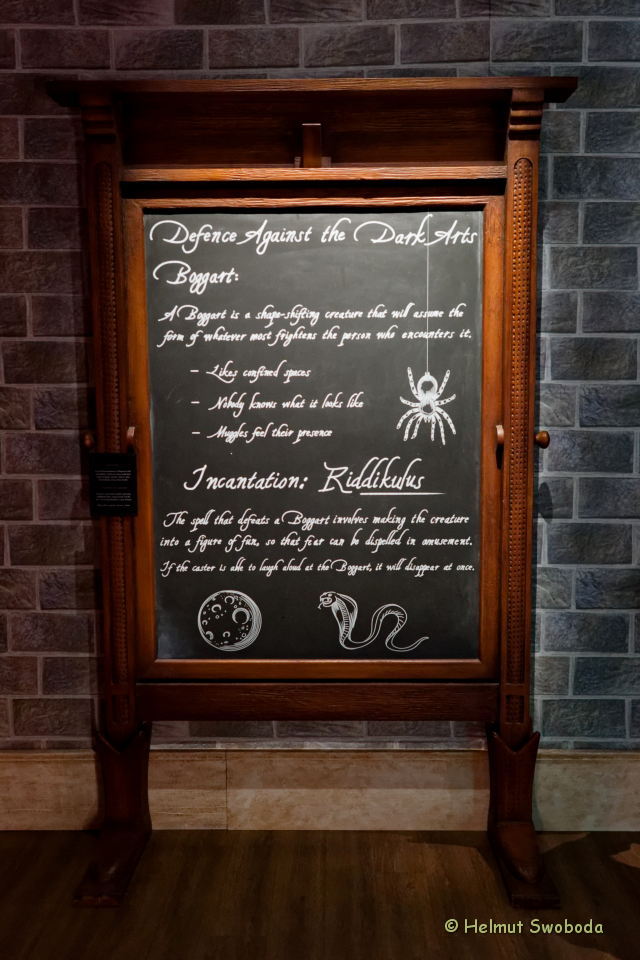 Defence Against the Dark Arts
Boggart:
A Boggart is a shape-shifting creature that will assume the
form of whatever most frightens the person who encounters it.
– Likes confined spaces
– Nobody knows what it looks like
– Muggles feel their presence
Incantation: Riddikulus
The spell that defeats a Boggart involves making the creature
into a figure of fun, so that fear can be dispelled in amusement.
If the caster is able to laugh aloud at the Boggart, it will disappear at once.
© Helmut Swoboda